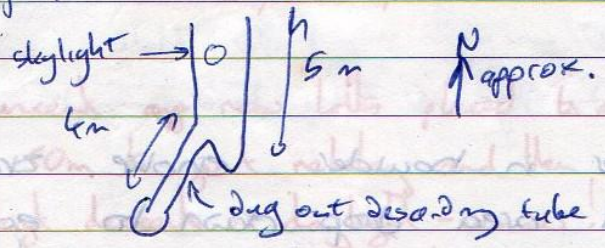 N
skylight
5m
approx.
4m
dug out descending tube